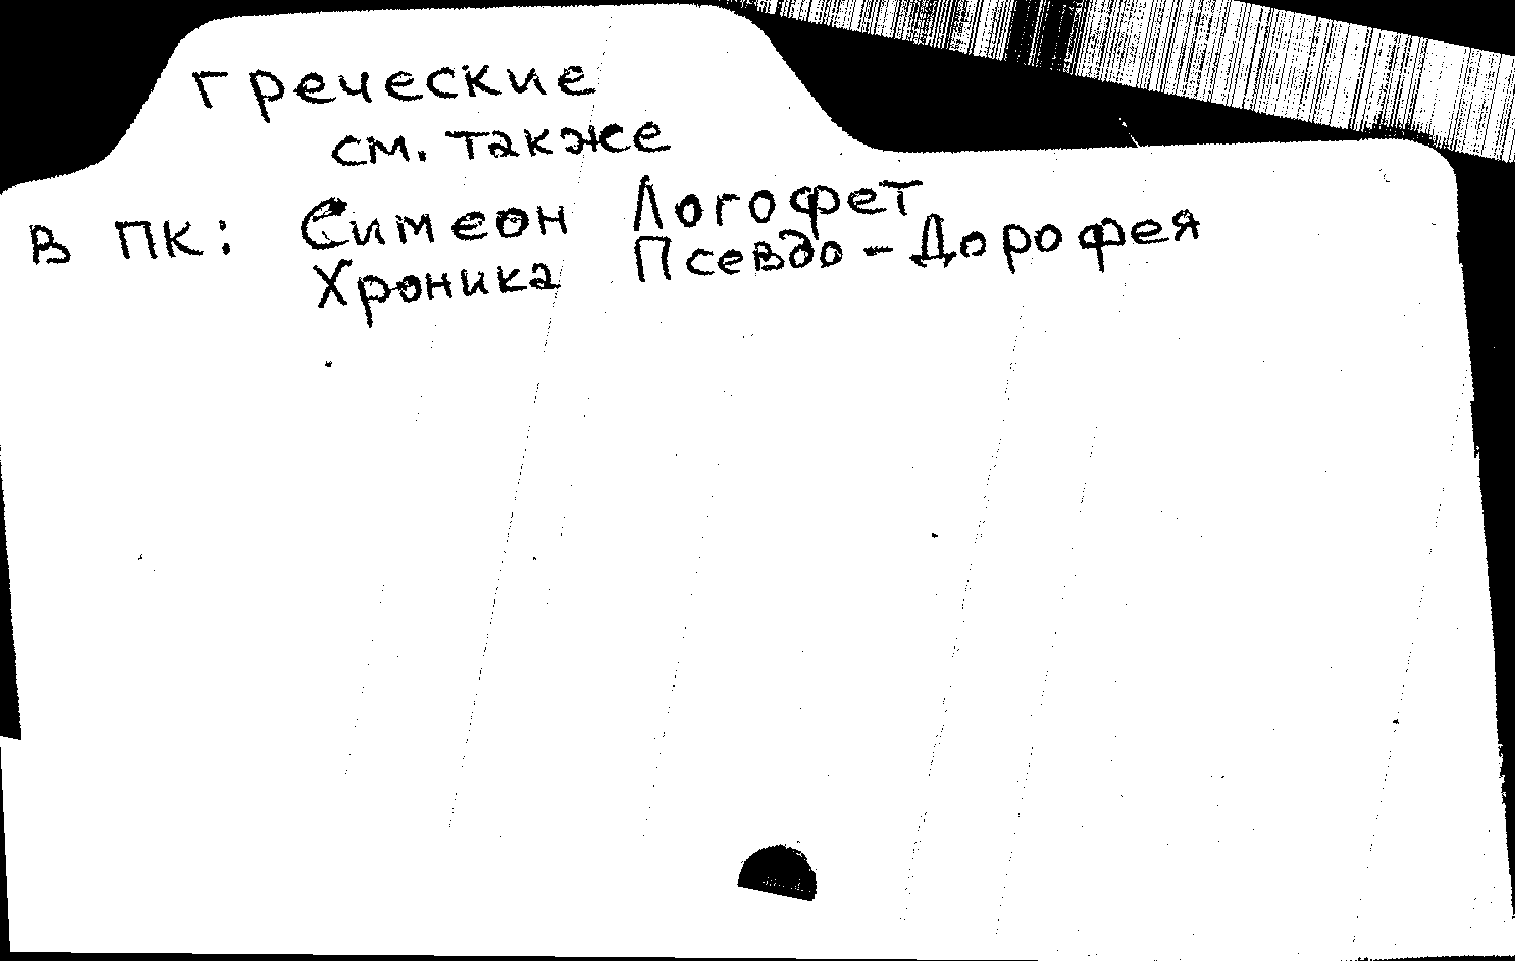 греческие
см. также
в ПК: Симеон Логофет
Хроника Псевдо-Дорофея